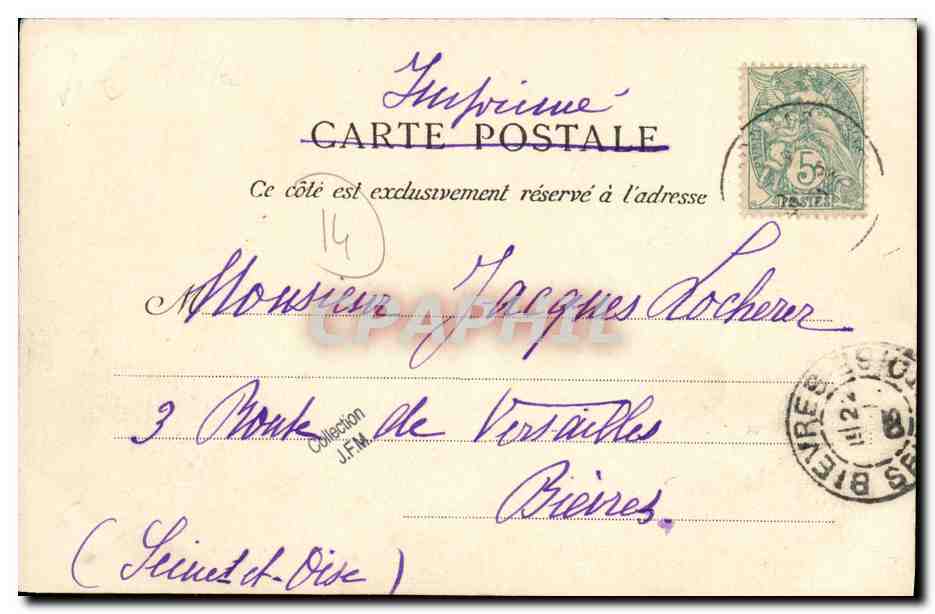 Imprimé
CARTE POSTALE
Ce côté est exclusivement réservé à l'adresse
14
5
POSTES
M Monsieur Jacques Locherer
CPAPHIL
3 Route de Versailles
Collection
J.F.M.
BIEVRES
Bièvres.
(Seine et-Oise)